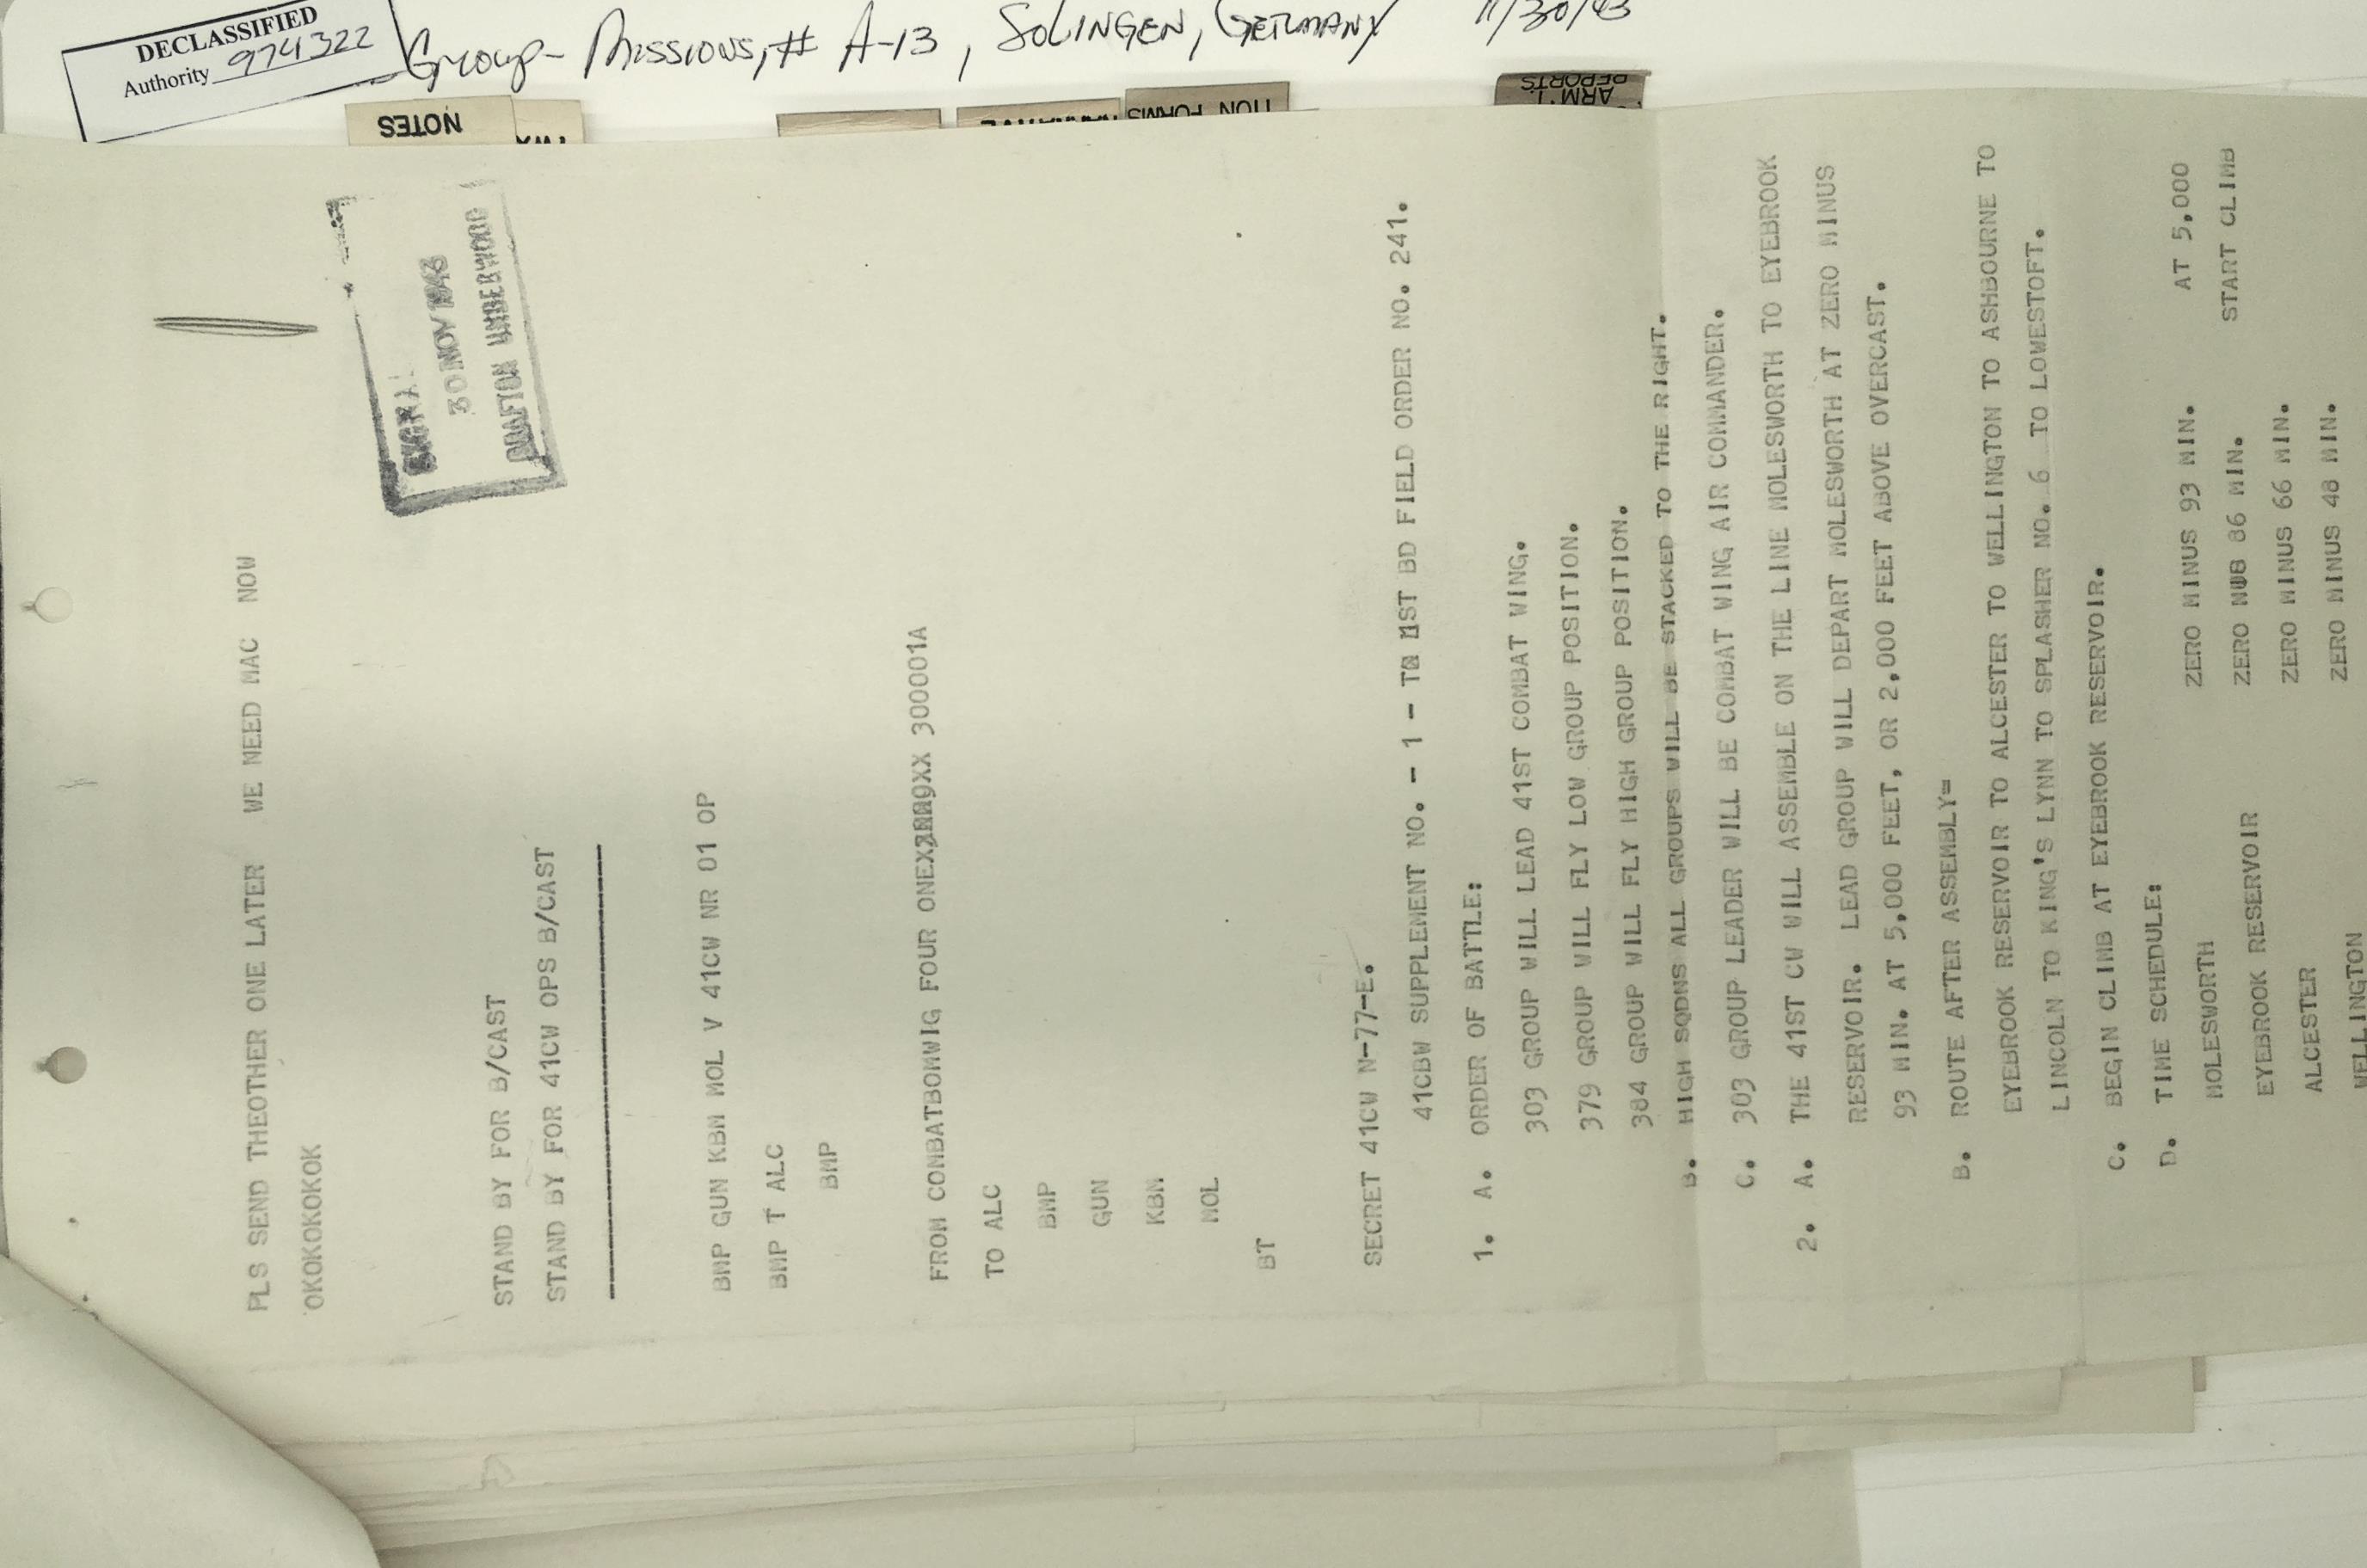 DECLASSIFIED
Authority 974322
Group- Missions, # A-13, SOLINGEN, GERMANY 11/30/43
NOTES
TION FORMS
ARM'T
REPORTS
30 NOV 1943
GRAFTON UNDERWOOD
PLS SEND THEOTHER ONE LATER WE NEED MAC NOW
OKOKOKOKOK
STAND BY FOR B/CAST
STAND BY FOR 41CW OPS B/CAST
BMP GUN KBM MOL V 41CW NR 01 OP
BMP T ALC
BMP
FROM COMBATBOMWIG FOUR ONE 300001A
TO ALC
BMP
GUN
KBM
MOL
BT
SECRET 41CW N-77-E.
41CBW SUPPLEMENT NO. - 1 - TO 1ST BD FIELD ORDER NO. 241.
1. A. ORDER OF BATTLE:
303 GROUP WILL LEAD 41ST COMBAT WING.
379 GROUP WILL FLY LOW GROUP POSITION.
384 GROUP WILL FLY HIGH GROUP POSITION.
B. HIGH SQDNS ALL GROUPS WILL BE STACKED TO THE RIGHT.
C. 303 GROUP LEADER WILL BE COMBAT WING AIR COMMANDER.
2. A. THE 41ST CW WILL ASSEMBLE ON THE LINE MOLESWORTH TO EYEBROOK
RESERVOIR. LEAD GROUP WILL DEPART MOLESWORTH AT ZERO MINUS
93 MIN. AT 5,000 FEET, OR 2,000 FEET ABOVE OVERCAST.
B. ROUTE AFTER ASSEMBLY=
EYEBROOK RESERVOIR TO ALCESTER TO WELLINGTON TO ASHBOURNE TO
LINCOLN TO KING'S LYNN TO SPLASHER NO. 6 TO LOWESTOFT.
C. BEGIN CLIMB AT EYEBROOK RESERVOIR.
D. TIME SCHEDULE:
MOLESWORTH ZERO MINUS 93 MIN. AT 5,000
EYEBROOK RESERVOIR ZERO 86 MIN. START CLIMB
ALCESTER ZERO MINUS 66 MIN.
WELLINGTON ZERO MINUS 48 MIN.